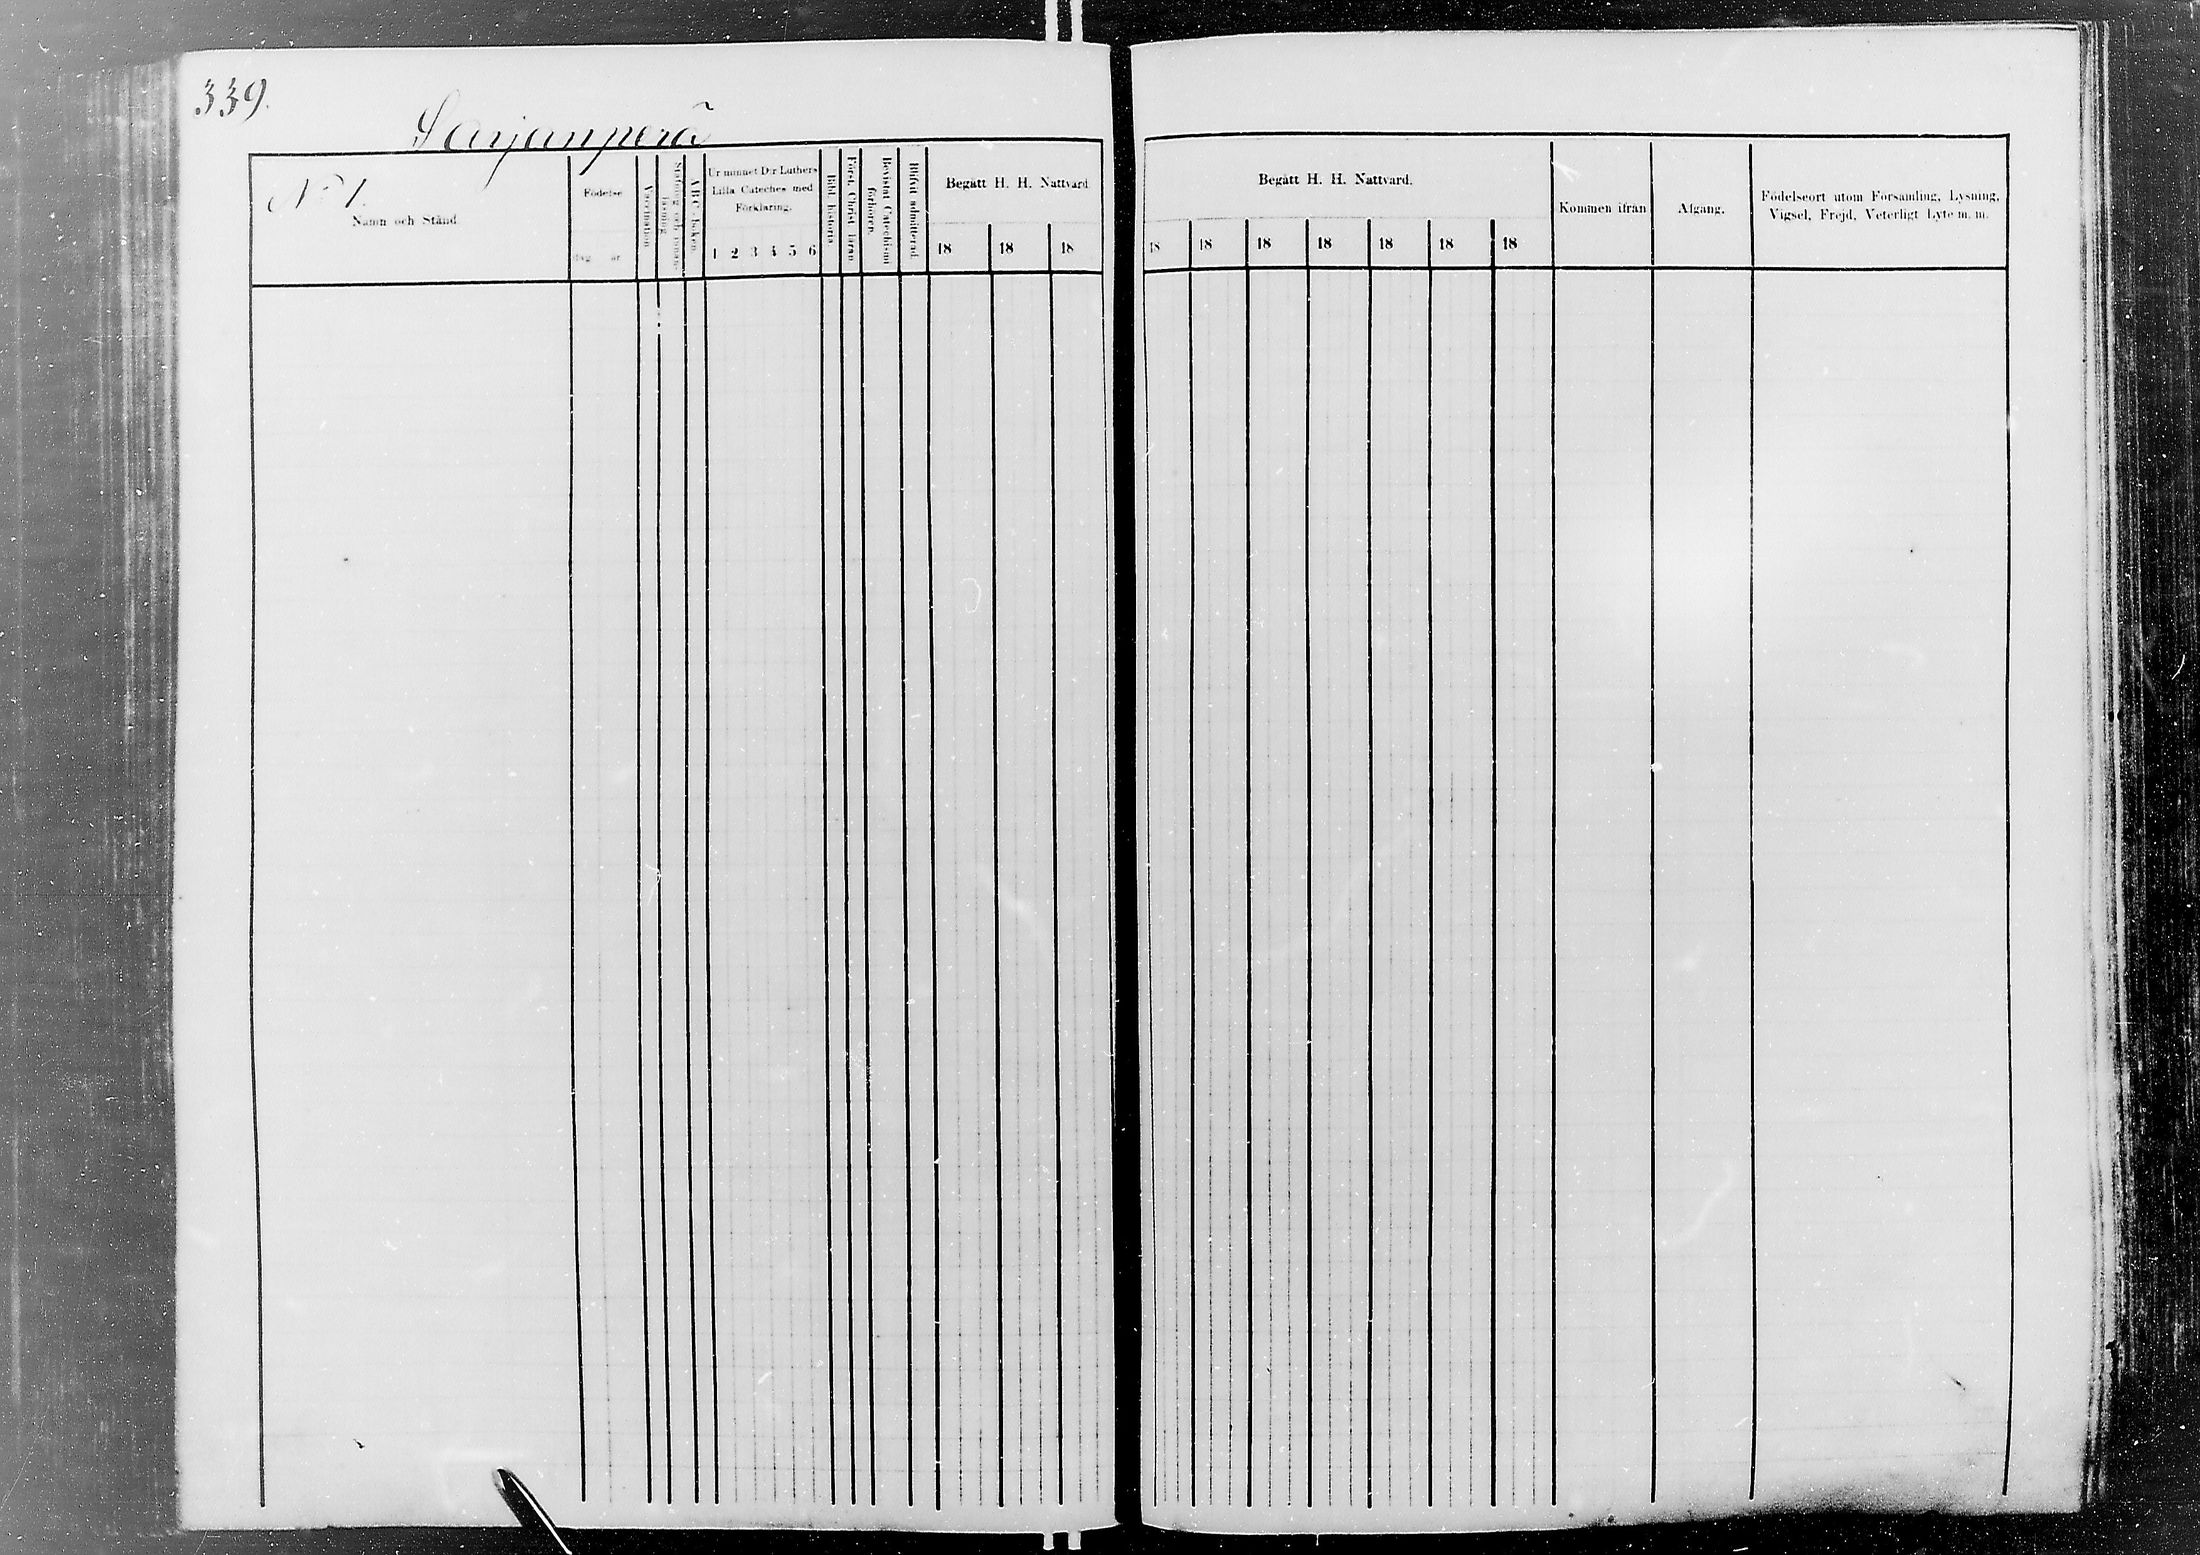 339.
Sarjanperä
No 1.
Namn och Stånd
Födelse
dag år
Vaccination
Stafning och innanläsning
ABC-boken
Ur minnet D:r Luthers
Lilla Cateches med
Förklaring.
1 2 3 4 5 6
Bibl. historia
Först. Christ. läran
Bevistat Catechismi
förhören.
Blifvit admitterad.
Begått H. H. Nattvard
18 18 18
Begått H. H. Nattvard.
18 18 18 18 18 18 18
Kommen ifrån
Afgång.
Födelseort utom Församling, Lysning,
Vigsel, Frejd, Veterligt Lyte m. m.